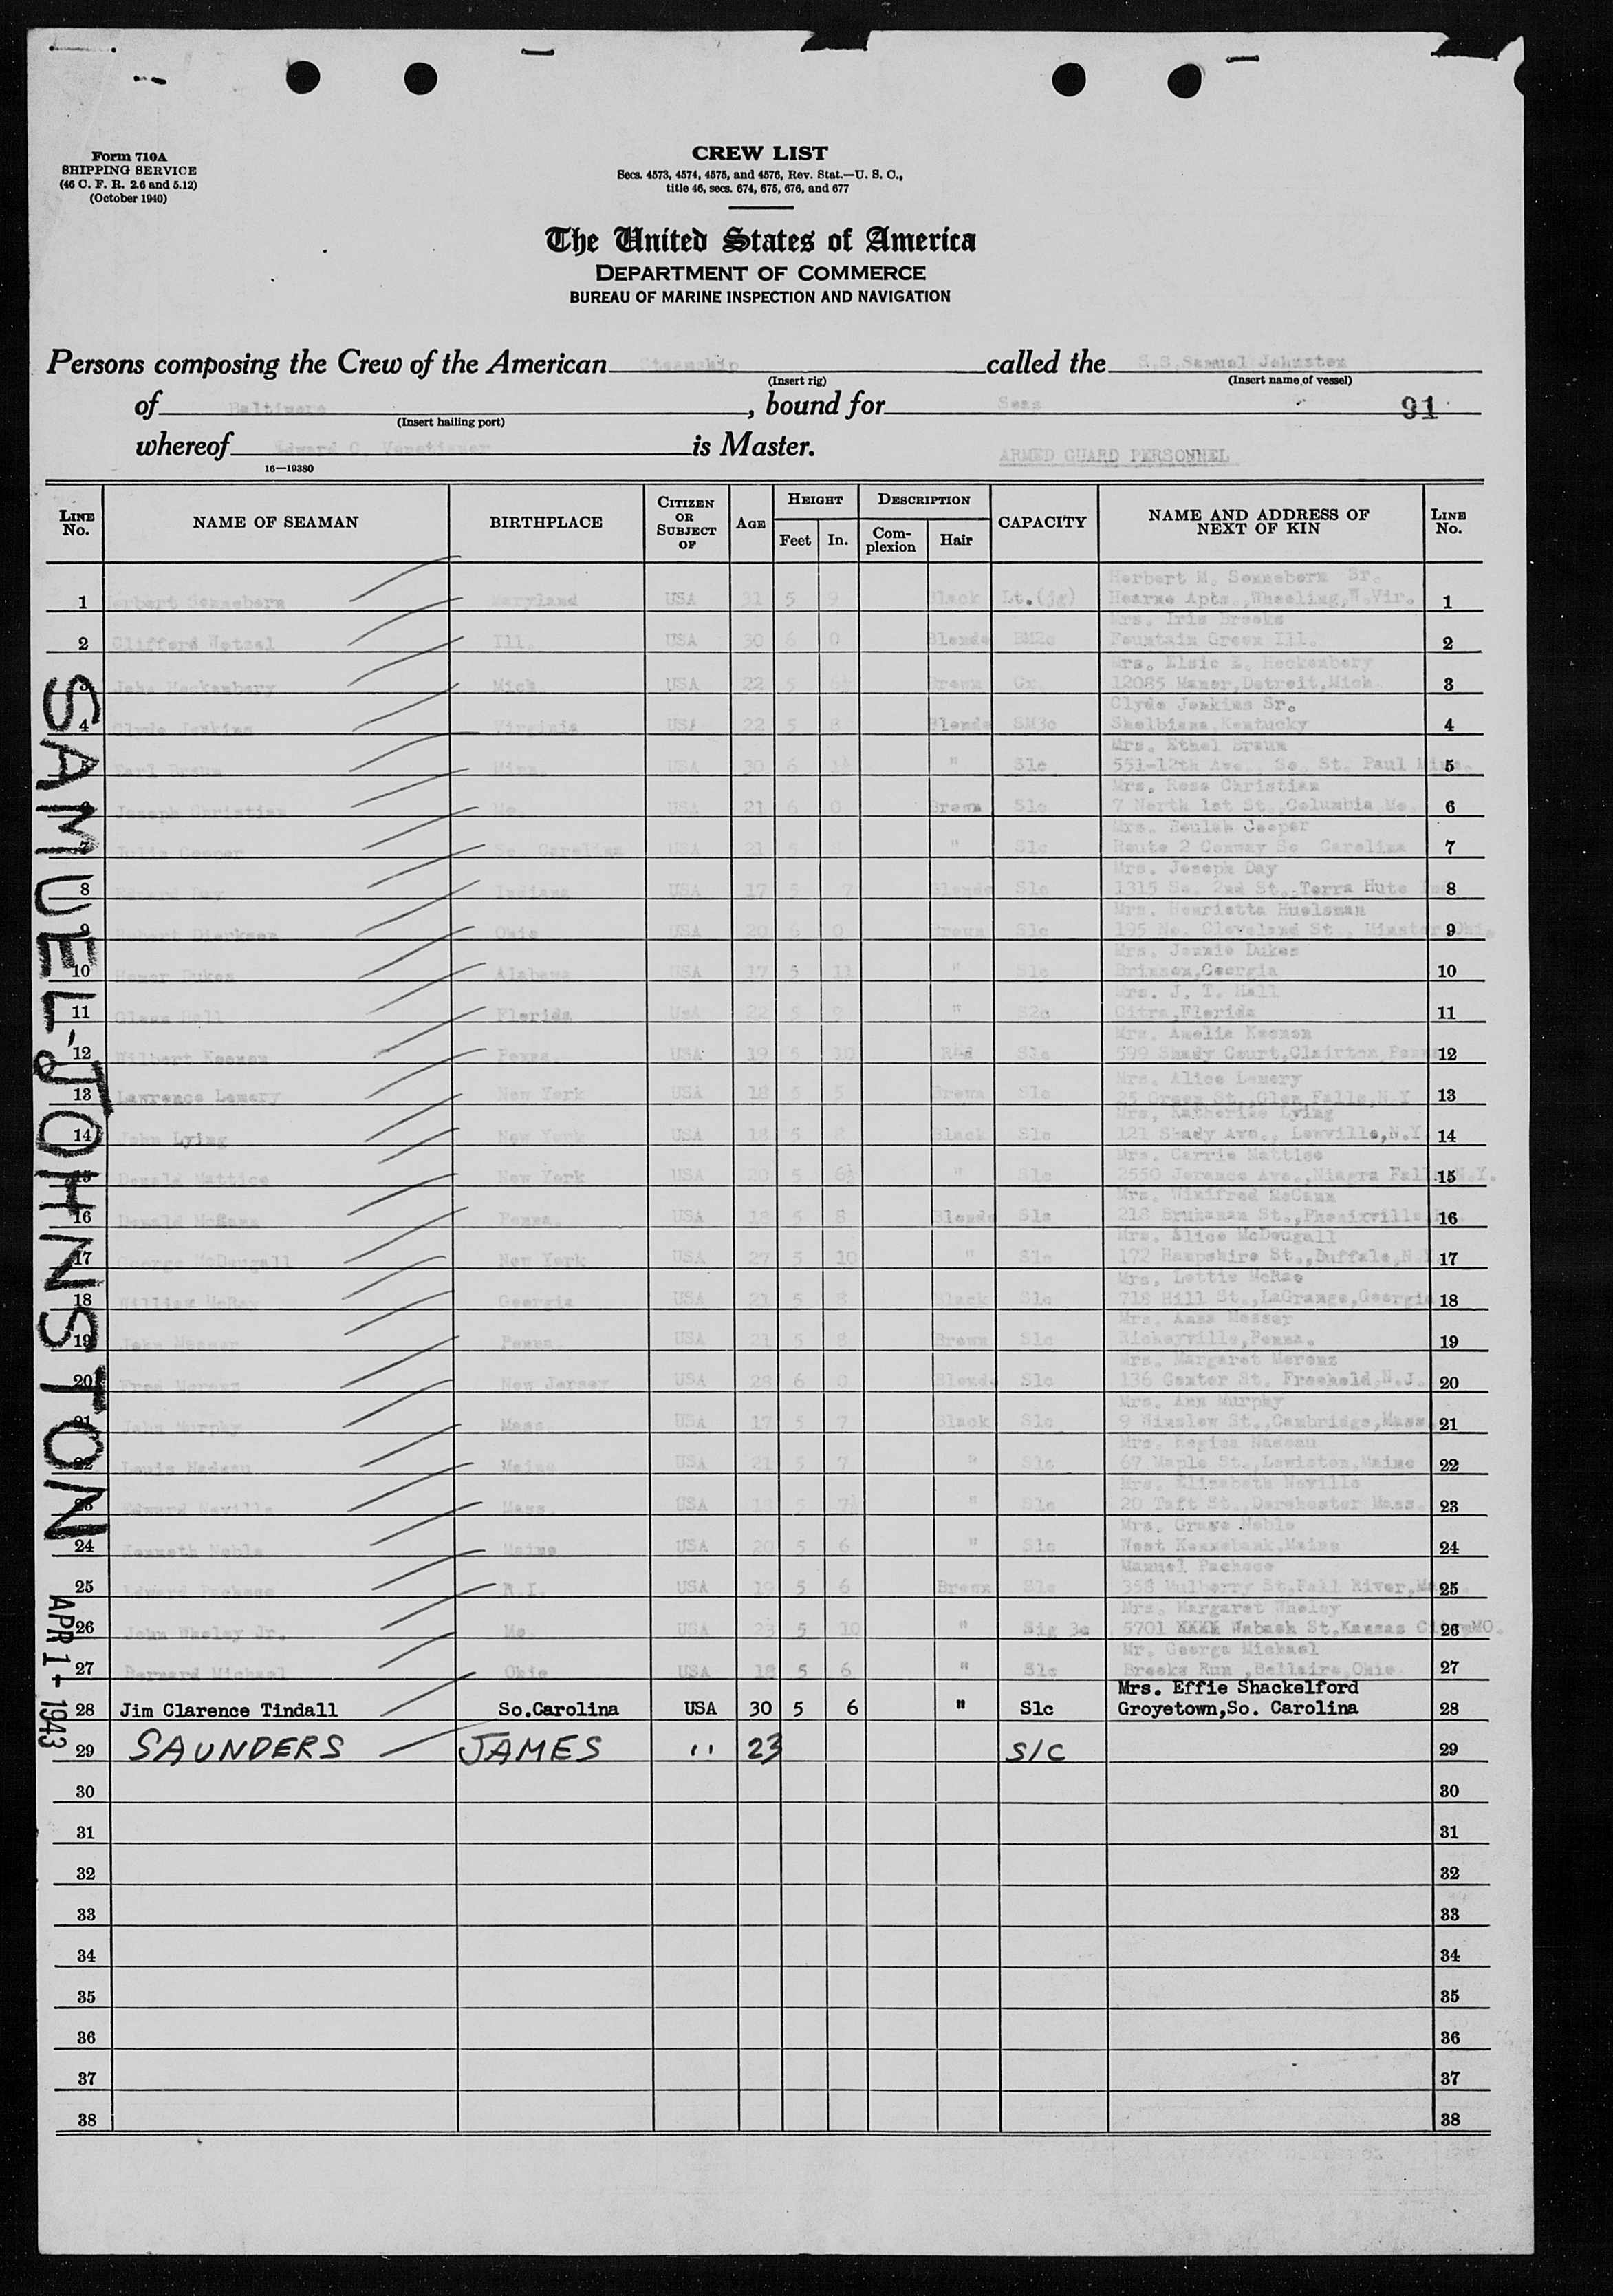 Form 710A
SHIPPING SERVICE
(46 C. F. R. 2.6 and 5.12)
(October 1940)
CREW LIST
Secs. 4573, 4574, 4575, and 4576, Rev. Stat.—U. S. C.,
title 46, secs. 674, 675, 676, and 677
The United States of America
DEPARTMENT OF COMMERCE
BUREAU OF MARINE INSPECTION AND NAVIGATION
Persons composing the Crew of the American Steamship called the S.S.Samuel Johnston
(Insert rig) (Insert name of vessel)
of Baltimore, bound for Seas 91
(Insert hailing port)
whereof Edward C. is Master. ARMED GUARD PERSONNEL
16—19380
LINE No. NAME OF SEAMAN BIRTHPLACE CITIZEN OR SUBJECT OF AGE HEIGHT Feet In. DESCRIPTION Complexion Hair CAPACITY NAME AND ADDRESS OF NEXT OF KIN LINE No.
Herbert M. Sonneborn Sr.
1 Herbert Sonneborn Maryland USA 31 5 9 Black Lt.(jg) Hearne Apts.,Wheeling,W.Vir. 1
Mrs. Iris Brooks
2 Clifford Wetzel Ill. USA 30 6 0 Blonde BM2c Fountain Green Ill. 2
Mrs. Elsie Heckenbery
3 John Heckenbery Mich. USA 22 5 6½ Brown Cx. 12085 Manor,Detroit,Mich. 3
Clyde Jenkins Sr.
4 Clyde Jenkins Virginia USA 22 5 8 Blonde SM3c Shelbiana,Kentucky 4
Mrs. Ethel Braun
5 Earl Braun Minn. USA 30 6 1½ " S1c 551-12th Ave. So. St. Paul Minn. 5
Mrs. Rose Christian
6 Joseph Christian Mo. USA 21 6 0 Brown S1c 7 North 1st St.,Columbia,Mo. 6
Mrs. Beulah Cooper
7 Julie Cooper So. Carolina USA 21 5 " S1c Route 2 Conway So Carolina 7
Mrs. Joseph Day
8 Edward Day Indiana USA 17 5 7 Blonde S1c 1315 So. 2nd St.,Terra Hute Ind. 8
Mrs. Henrietta Huelsman
9 Robert Dierksen Ohio USA 20 6 0 Brown S1c 195 No. Cleveland St., Minster Ohio 9
Mrs. Jennie Dukes
10 Homer Dukes Alabama USA 17 5 11 " S1c Brinson,Georgia 10
Mrs. J. T. Hall
11 Hall Florida USA 22 5 9 " S2c Citra,Florida 11
Mrs. Amelia Keenon
12 Wilbert Keenon Penna. USA 19 5 10 Red S1c 599 Shady Court,Clairton,Penna 12
Mrs. Alice Lemery
13 Lawrence Lemery New York USA 18 5 5 Brown S1c 25 Green St.,Glen Falls,N.Y. 13
Mrs, Katherine Lying
14 John Lying New York USA 18 5 8 Black S1c 121 Shady Ave., Lowville,N.Y. 14
Mrs. Carrie Mattice
15 Donald Mattice New York USA 20 5 6½ " S1c 2550 Jerance Ave.,Niagra Falls N.Y. 15
Mrs. Winifred McCann
16 Donald McCann Penna. USA 18 5 8 Blonde S1c 218 Bruhanan St.,Phenixville 16
Mrs. Alice McDougall
17 George McDougall New York USA 27 5 10 " S1c 172 Hampshire St.,Buffalo,N.Y. 17
Mrs. Lettie McRae
18 William McRay Georgia USA 21 5 8 Black S1c 718 Hill St.,LaGrange,Georgia 18
Mrs. Anna Messer
19 John Messer Penna. USA 21 5 8 Brown S1c Rickeyville,Penna. 19
Mrs. Margaret Merenz
20 Fred Merenz New Jersey USA 28 6 0 Blonde S1c 136 Center St. Freehold,N.J. 20
Mrs. Ann Murphy
21 John Murphy Mass. USA 17 5 7 Black S1c 9 Winslow St.,Cambridge,Mass. 21
Mrs. Regina Nadeau
22 Louis Nadeau Maine USA 21 5 7 " S1c 67 Maple St.,Lewiston,Maine 22
Mrs. Elizabeth Neville
23 Edward Neville Mass. USA 18 5 7½ " S1c 20 Taft St.,Dorchester Mass. 23
Mrs. Grace Noble
24 Kenneth Noble Maine USA 20 5 6 " S1c West Kennebunk,Maine 24
Manuel Pacheco
25 Edward Pacheco R.I. USA 19 5 6 Brown S1c 358 Mulberry St.Fall River,Ma 25
Mrs. Margaret Wheley
26 John Wheley Jr. Mo. USA 23 5 10 " Sig 3c 5701 XXXX Wabash St.Kansas City MO. 26
Mr. George Michael
27 Bernard Michael Ohio USA 18 5 6 " S1c Brooks Run ,Bellaire,Ohio. 27
Mrs. Effie Shackelford
28 Jim Clarence Tindall So.Carolina USA 30 5 6 " S1c Groyetown,So. Carolina 28
29 SAUNDERS JAMES " 23 S/C 29
30 30
31 31
32 32
33 33
34 34
35 35
36 36
37 37
38 38
SAMUEL-JOHNSTON
APR 1- 1943